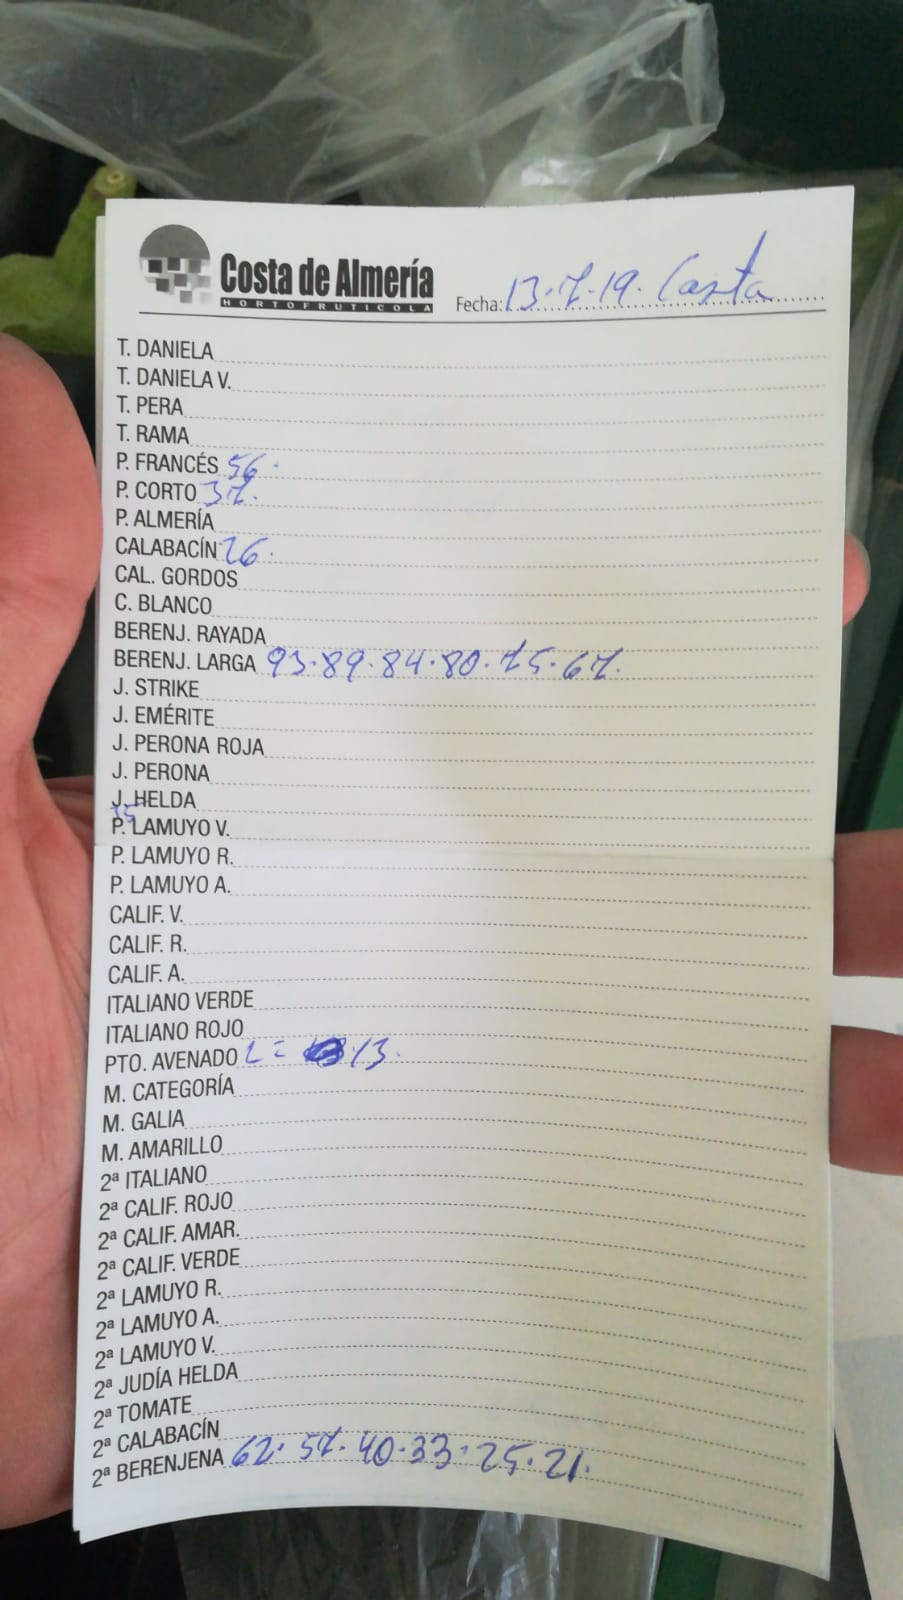 Costa de Almería
HORTOFRUTICOLA
Fecha: 13.7.19. Costa
T. DANIELA
T. DANIELA V.
T. PERA
T. RAMA
P. FRANCÉS 56.
P. CORTO 37.
P. ALMERÍA
CALABACÍN 26.
CAL. GORDOS
C. BLANCO
BERENJ. RAYADA
BERENJ. LARGA 93.89.84.80.75.67.
J. STRIKE
J. EMÉRITE
J. PERONA ROJA
J. PERONA
J. HELDA
P. LAMUYO V.
P. LAMUYO R.
P. LAMUYO A.
CALIF. V.
CALIF. R.
CALIF. A.
ITALIANO VERDE
ITALIANO ROJO
PTO. AVENADO L = 13.
M. CATEGORÍA
M. GALIA
M. AMARILLO
2ª ITALIANO
2ª CALIF. ROJO
2ª CALIF. AMAR.
2ª CALIF. VERDE
2ª LAMUYO R.
2ª LAMUYO A.
2ª LAMUYO V.
2ª JUDÍA HELDA
2ª TOMATE
2ª CALABACÍN
2ª BERENJENA 62.57.40.33.25.21.